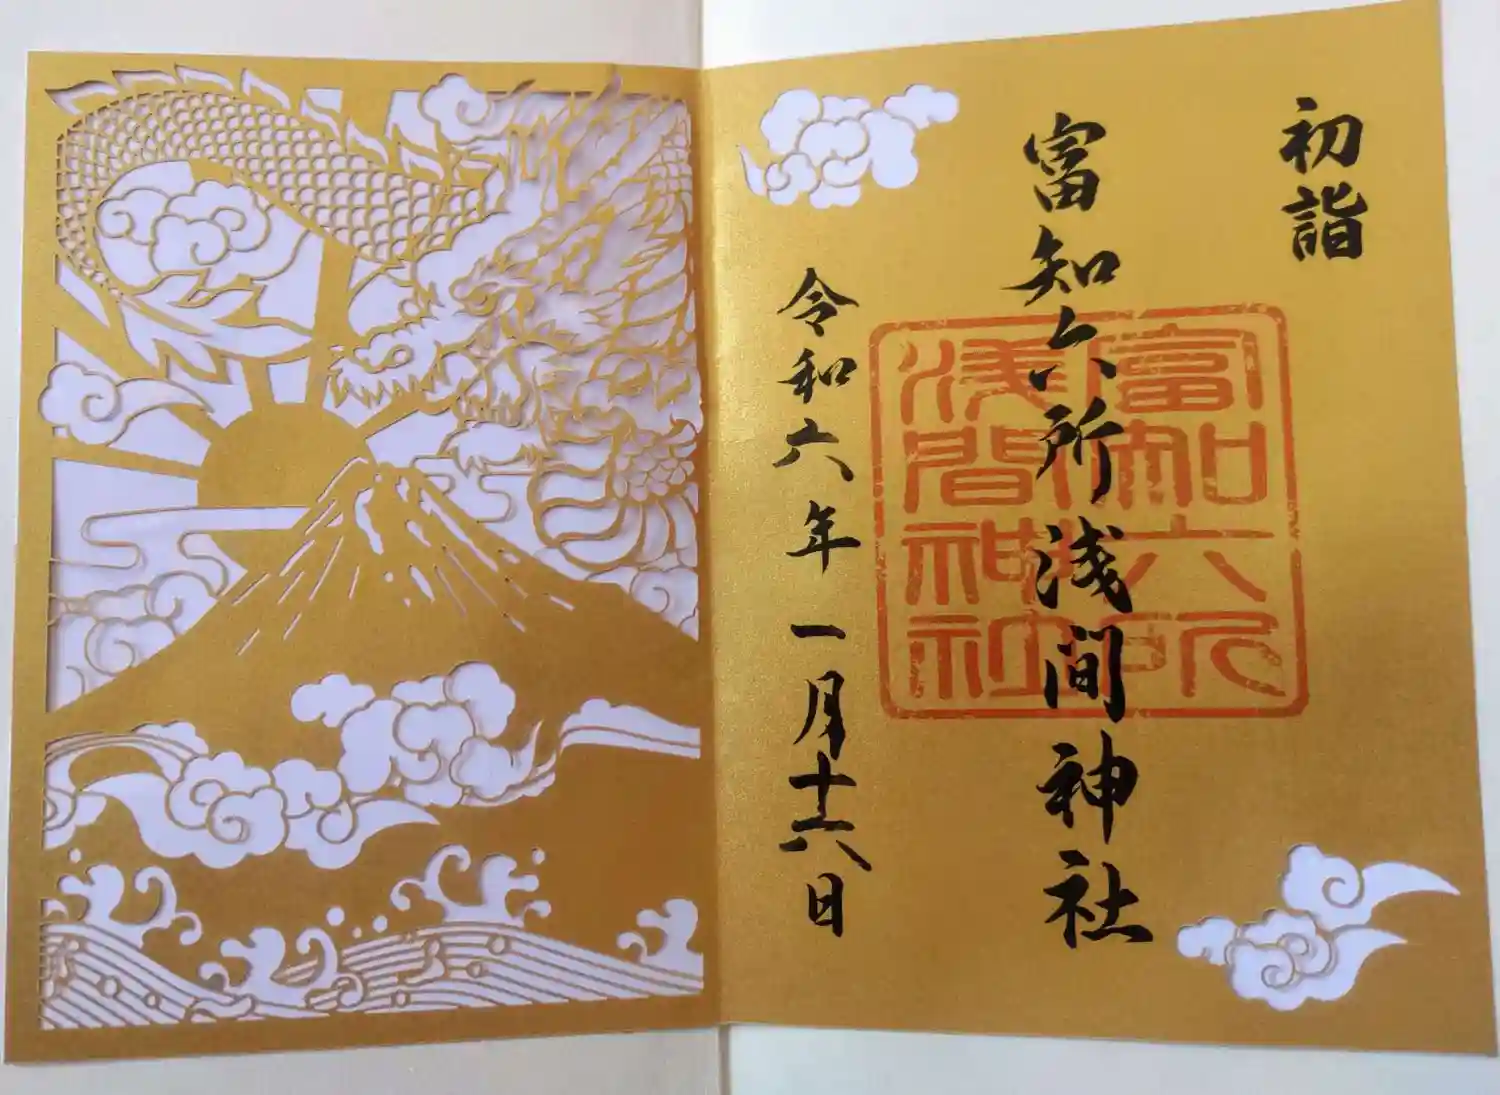 初詣
富知六所浅間神社
富知六所
浅間神社
令和六年一月十六日